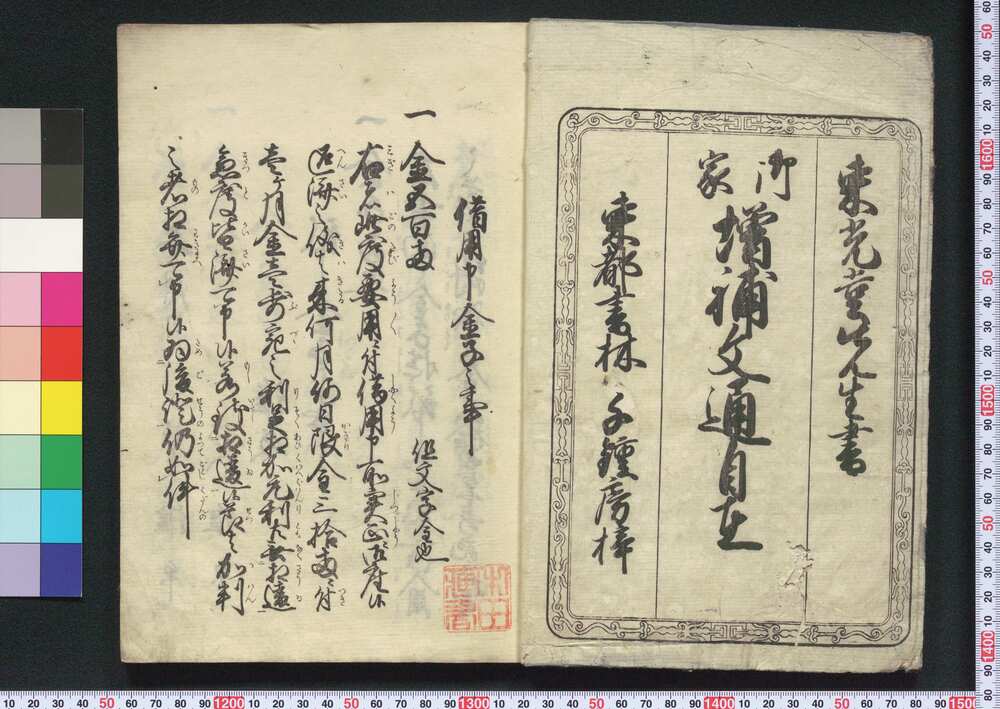 東光堂先生書
御家
増補文通自在
東都書林 千鍾房梓
借用申金子之事
一 金五百両 但文字金也
右者此度要用ニ付借用申所実正御座候
返済之儀者来何月何日限金三拾両ニ付
壱ヶ月金壱歩宛之利足相加元利共無相違
急度皆済可申候若致相違候節者加判
之者相弁可申候為後證仍如件